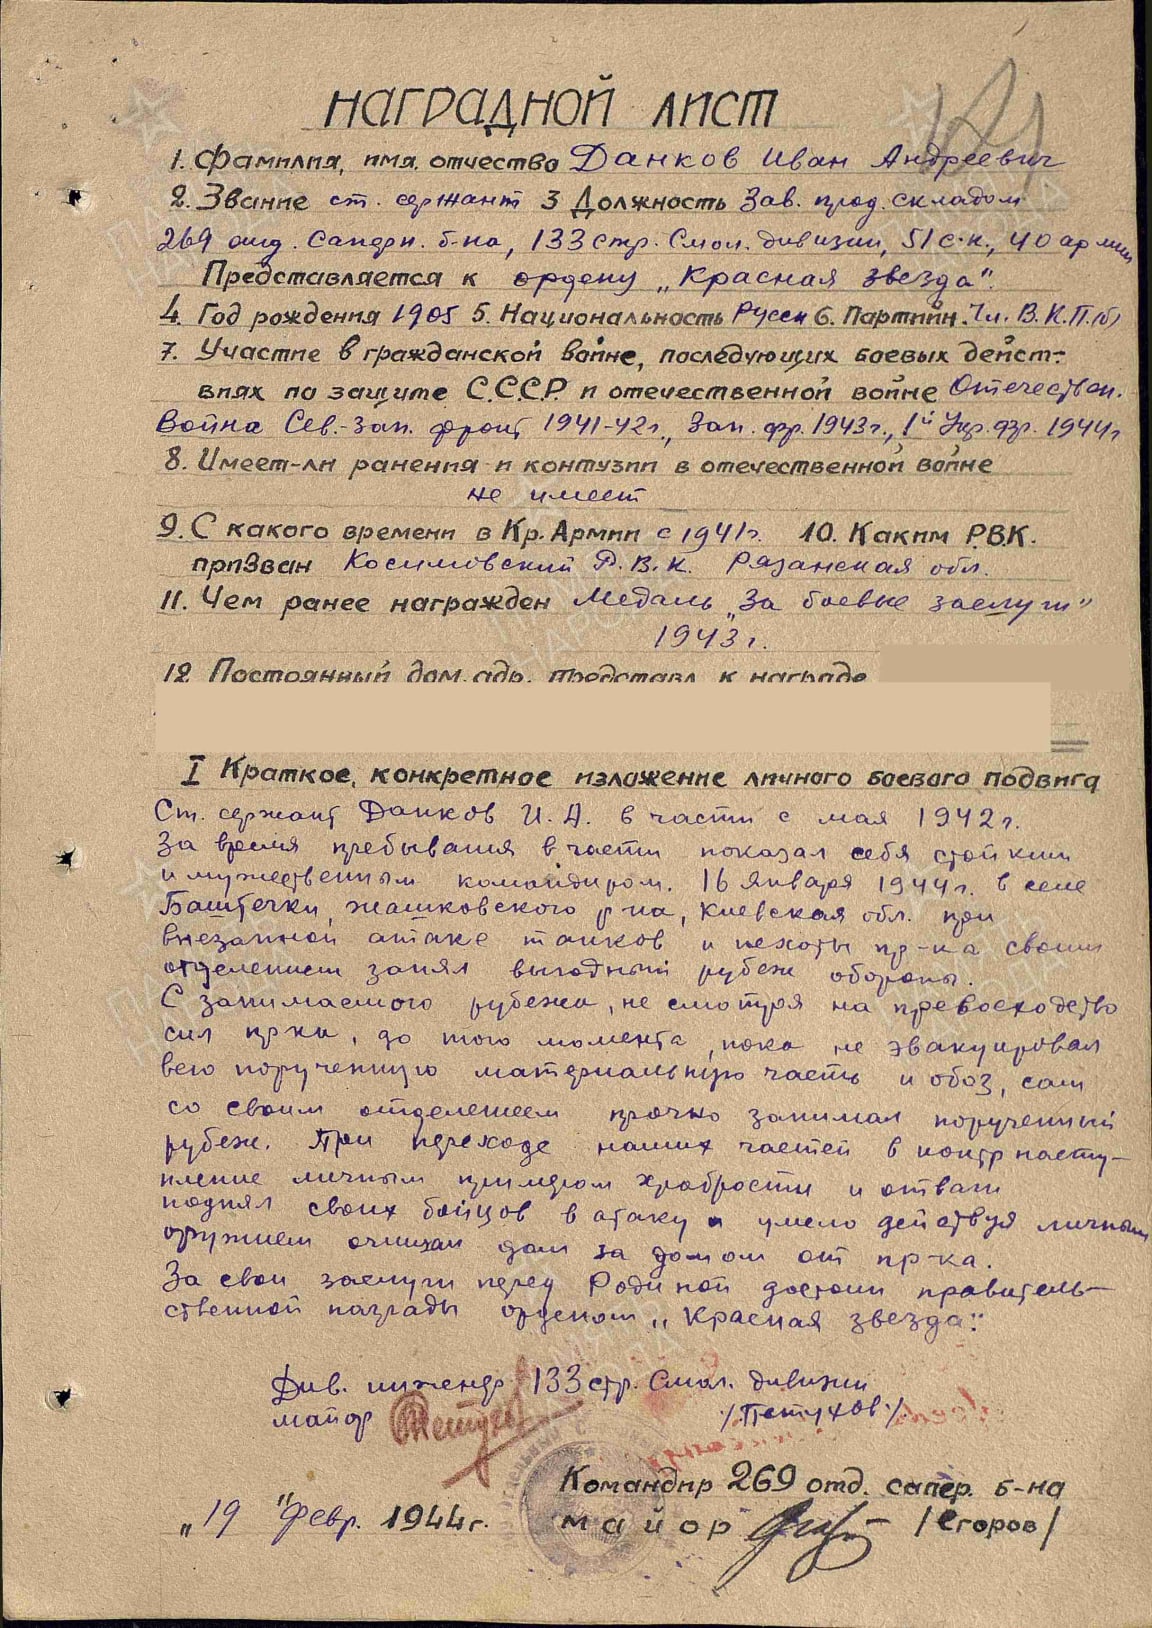 НАГРАДНОЙ ЛИСТ
1. Фамилия, имя, отчество Данков Иван Андреевич
2. Звание ст. сержант 3 Должность Зав. прод. складом
269 отд. саперн. б-на, 133 стр. Смол. дивизии, 51 с.к., 40 армии
Представляется к ордену „Красная звезда".
4. Год рождения 1905 5. Национальность Русск 6. Партийн. Чл. В.К.П.(б)
7. Участие в гражданской войне, последующих боевых дейст-
виях по защите С.С.С.Р. и отечественной войне Отечествен.
Война Сев.-Зап. фронт 1941-42 г., Зап. фр. 1943 г., 1й Укр. фр. 1944 г
8. Имеет-ли ранения и контузии в отечественной войне
не имеет
9. С какого времени в Кр. Армии с 1941 г. 10. Каким Р.В.К.
призван Косимовский Р.В.К. Рязанская обл.
11. Чем ранее награжден Медаль „За боевые заслуги"
1943 г.
12 Постоянный дом. адр. представл. к награде
I Краткое, конкретное изложение личного боевого подвига
Ст. сержант Данков И. А. в части с мая 1942 г.
За время пребывания в части показал себя стойким
и мужественным командиром. 16 января 1944 г. в селе
Баштечки, Жашковского р-на, Киевская обл. при
внезапной атаке танков и пехоты пр-ка своим
отделением занял выгодный рубеж обороны.
С занимаемого рубежа, не смотря на превосходство
сил пр-ка, до того момента, пока не эвакуировал
всю порученную материальную часть и обоз, сам
со своим отделением прочно занимал порученный
рубеж. При переходе наших частей в контрнасту-
пление личным примером храбрости и отваги
поднял своих бойцов в атаку и умело действуя личным
оружием очищал дом за домом от пр-ка.
За свои заслуги перед Родиной достоин правитель-
ственной награды орденом „Красная звезда".
Див. инженер 133 стр. Смол. дивизии
майор Петухов /Петухов/
Командир 269 отд. сапер. б-на
„19" Февр. 1944 г. майор /Егоров/